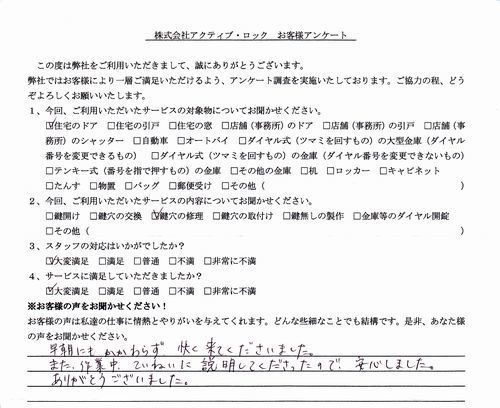 株式会社アクティブ・ロック　お客様アンケート
この度は弊社をご利用いただきまして、誠にありがとうございます。
弊社ではお客様により一層ご満足いただけるよう、アンケート調査を実施いたしております。ご協力の程、どう
ぞよろしくお願いいたします。
１、今回、ご利用いただいたサービスの対象物についてお聞かせください。
☑住宅のドア　□住宅の引戸　□住宅の窓　□店舗（事務所）のドア　□店舗（事務所）の引戸　□店舗（事
務所）のシャッター　□自動車　□オートバイ　□ダイヤル式（ツマミを回すもの）の大型金庫（ダイヤル
番号を変更できるもの）　□ダイヤル式（ツマミを回すもの）の金庫（ダイヤル番号を変更できないもの）
□テンキー式（番号を指で押すもの）の金庫　□その他の金庫　□机　□ロッカー　□キャビネット
□たんす　□物置　□バッグ　□郵便受け　□その他（　　　　　　　　　　　　　　　　）
２、今回、ご利用いただいたサービスの内容についてお聞かせください。
□鍵開け　□鍵穴の交換　☑鍵穴の修理　□鍵穴の取付け　□鍵無しの製作　□金庫等のダイヤル開錠
□その他（　　　　　　　　　　　　　　　　　　　　　　　　　　　　　　）
３、スタッフの対応はいかがでしたか？
☑大変満足　□満足　□普通　□不満　□非常に不満
４、サービスに満足していただきましたか？
☑大変満足　□満足　□普通　□不満　□非常に不満
※お客様の声をお聞かせください！
お客様の声は私達の仕事に情熱とやりがいを与えてくれます。どんな些細なことでも結構です。是非、あなた様
の声をお聞かせください。
早朝にもかかわらず　快く来てくださいました。
また、作業中、ていねいに説明してくださったので、安心しました。
ありがとうございました。